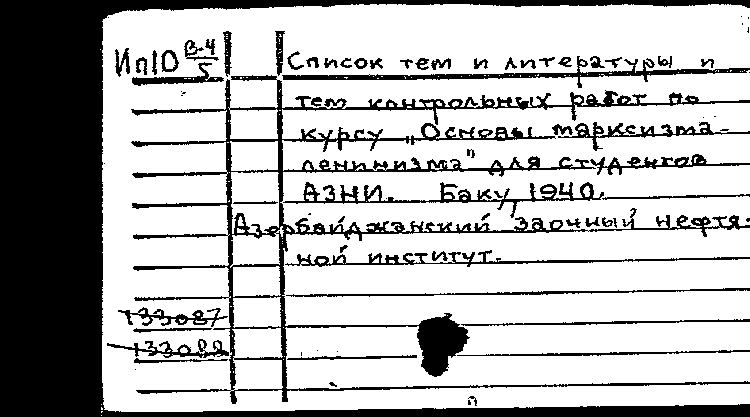 Ип10 В-4/5
Список тем и литературы и
тем контрольных работ по
курсу „Основы марксизма-
ленинизма" для студентов
АЗНИ. Баку, 1940.
Азербайджанский заочный нефтя-
ной институт.
133087
133088